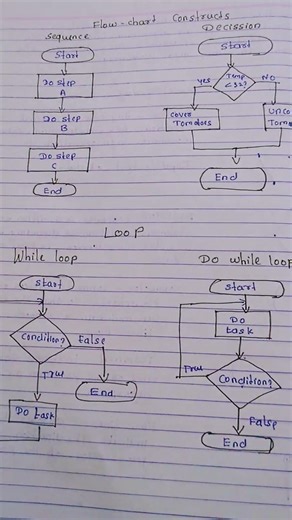 Flow-chart Constructs
Sequence
Start
Do step
A
Do step
B
Do step
C
End
Decission
Start
Temp
<32?
Yes
NO
Cover
Tomatoes
Unco
Toma
End
LOOP
While loop
Start
Condition?
False
True
Do task
End
Do while loop
Start
Do
task
True
Condition?
False
End